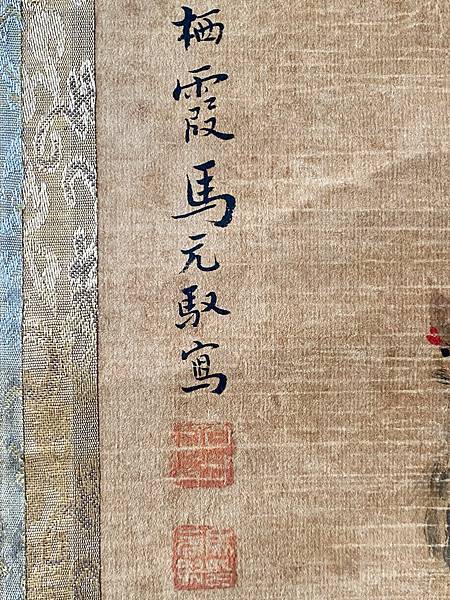 栖霞馬元馭寫